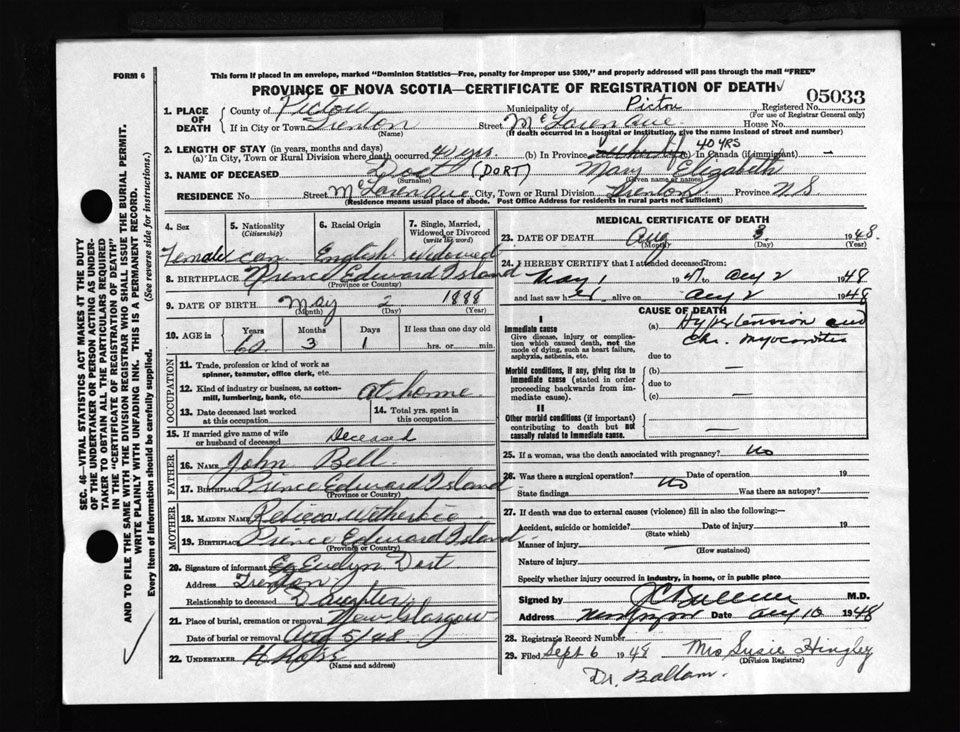 FORM 6
This form if placed in an envelope, marked "Dominion Statistics—Free, penalty for improper use $300," and properly addressed will pass through the mail "FREE"
PROVINCE OF NOVA SCOTIA—CERTIFICATE OF REGISTRATION OF DEATH
05033
1. PLACE OF DEATH
County of Pictou Municipality of Pictou Registered No.
(For use of Registrar General only)
If in City or Town Trenton Street McLaren Ave House No.
(Name) (If death occurred in a hospital or institution, give the name instead of street and number)
2. LENGTH OF STAY (in years, months and days)
(a) In City, Town or Rural Division where death occurred 40 yrs (b) In Province 40 YRS (c) in Canada (if immigrant) —
3. NAME OF DECEASED Dort (DORT) Mary Elizabeth
(Surname) (Given name or names)
RESIDENCE No. Street McLaren Ave City, Town or Rural Division Trenton Province N.S
(Residence means usual place of abode. Post Office Address for residents in rural parts not sufficient)
4. Sex 5. Nationality (Citizenship) 6. Racial Origin 7. Single, Married, Widowed or Divorced (write the word)
Female Can English Widowed
8. BIRTHPLACE Prince Edward Island
(Province or Country)
9. DATE OF BIRTH May 2 1888
(Month) (Day) (Year)
10. AGE in Years Months Days If less than one day old
60 3 1 hrs. or min.
OCCUPATION
11. Trade, profession or kind of work as spinner, teamster, office clerk, etc.
12. Kind of industry or business, as cotton-mill, lumbering, bank, etc. At home
13. Date deceased last worked at this occupation
14. Total yrs. spent in this occupation
15. If married give name of wife or husband of deceased Deceased
FATHER
16. NAME John Bell
17. BIRTHPLACE Prince Edward Island
(Province or Country)
MOTHER
18. MAIDEN NAME Rebicca Witherbie
19. BIRTHPLACE Prince Edward Island
(Province or Country)
20. Signature of informant Evelyn Dort
Address Trenton
Relationship to deceased Daughter
21. Place of burial, cremation or removal New Glasgow
Date of burial or removal Aug 5/48
22. UNDERTAKER H Rose
(Name and address)
MEDICAL CERTIFICATE OF DEATH
23. DATE OF DEATH Aug 3 1948
(Month) (Day) (Year)
24. I HEREBY CERTIFY that I attended deceased from:
May 1 1947 to Aug 2 1948
and last saw her alive on Aug 2 1948
CAUSE OF DEATH
I
Immediate cause (a) Hypertension and
Give disease, injury or complication which caused death, not the mode of dying, such as heart failure, asphyxia, asthenia, etc.
Chr. Myocarditis
due to
Morbid conditions, if any, giving rise to immediate cause (stated in order proceeding backwards from immediate cause).
(b) —
due to
(c) —
II
Other morbid conditions (if important) contributing to death but not causally related to immediate cause. —
25. If a woman, was the death associated with pregnancy? No
26. Was there a surgical operation? No Date of operation 19
State findings Was there an autopsy?
27. If death was due to external causes (violence) fill in also the following:—
Accident, suicide or homicide? Date of injury 19
(State which)
Manner of injury
(How sustained)
Nature of injury
Specify whether injury occurred in industry, in home, or in public place
Signed by M.D.
Address New Glasgow Date Aug 10 1948
28. Registrar's Record Number
29. Filed Sept 6 1948 Mrs Susie Hingley
(Division Registrar)
Dr. Ballam.
SEC. 46—VITAL STATISTICS ACT MAKES IT THE DUTY OF THE UNDERTAKER OR PERSON ACTING AS UNDERTAKER TO OBTAIN ALL THE PARTICULARS REQUIRED IN THE "CERTIFICATE OF REGISTRATION OF DEATH"
AND TO FILE THE SAME WITH THE DIVISION REGISTRAR WHO SHALL ISSUE THE BURIAL PERMIT.
WRITE PLAINLY WITH UNFADING INK. THIS IS A PERMANENT RECORD.
Every item of information should be carefully supplied. (See reverse side for instructions.)